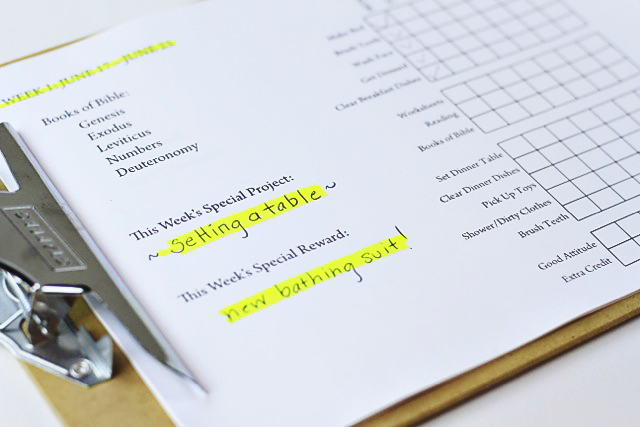 WEEK 1: JUNE 17 - JUNE 21
Books of Bible:
Genesis
Exodus
Leviticus
Numbers
Deuteronomy
This Week's Special Project:
~ Setting a table ~
This Week's Special Reward:
new bathing suit!
Make Bed
Brush Teeth
Wash Face
Get Dressed
Clear Breakfast Dishes
Worksheets
Reading
Books of Bible
Set Dinner Table
Clear Dinner Dishes
Pick Up Toys
Shower/Dirty Clothes
Brush Teeth
Good Attitude
Extra Credit